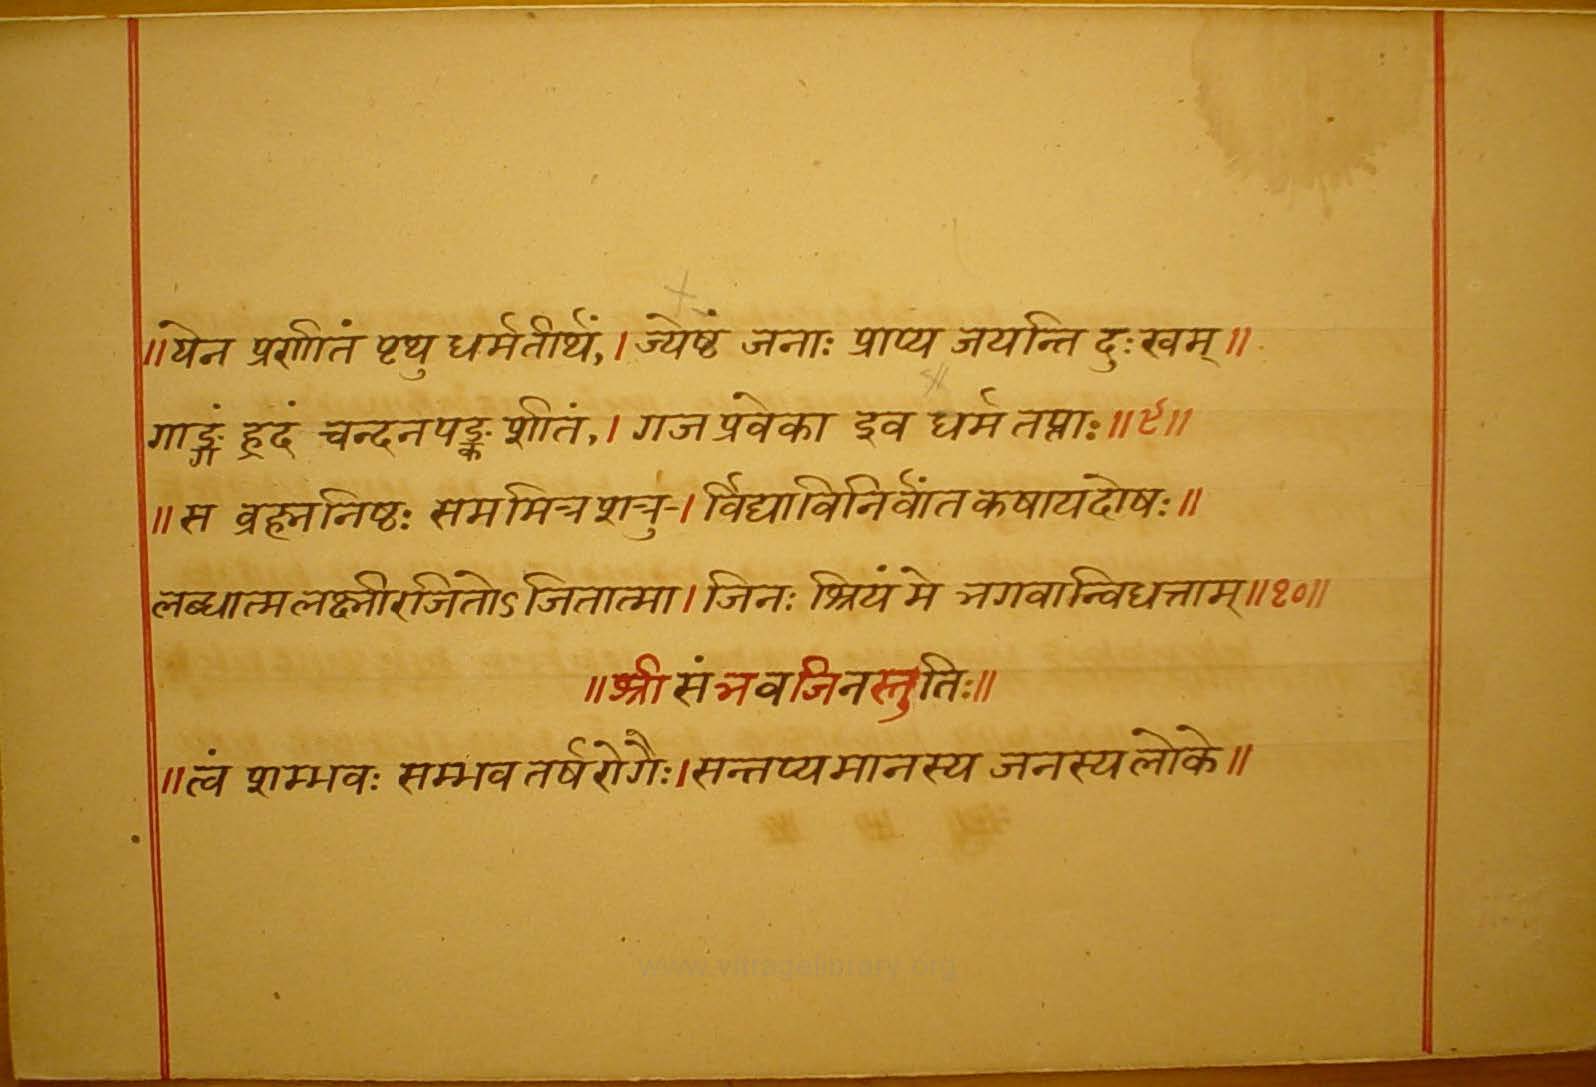 ॥येन प्रणीतं पृथु धर्मतीर्थं,। ज्येष्ठं जनाः प्राप्य जयन्ति दुःखम्॥
गाङ्गं ह्रदं चन्दनपङ्कशीतं,। गजप्रवेका इव घर्म तप्ताः॥९॥
॥स ब्रह्मनिष्ठः सममित्रशत्रु-। र्विद्याविनिर्वांतकषायदोषः॥
लब्धात्मलक्ष्मीरजितोऽजितात्मा। जिनः श्रियं मे भगवान्विधत्ताम्॥१०॥
॥श्री संभवजिनस्तुतिः॥
॥त्वं शम्भवः सम्भवतर्षरोगैः।सन्तप्यमानस्य जनस्य लोके॥
www.vitragelibrary.org